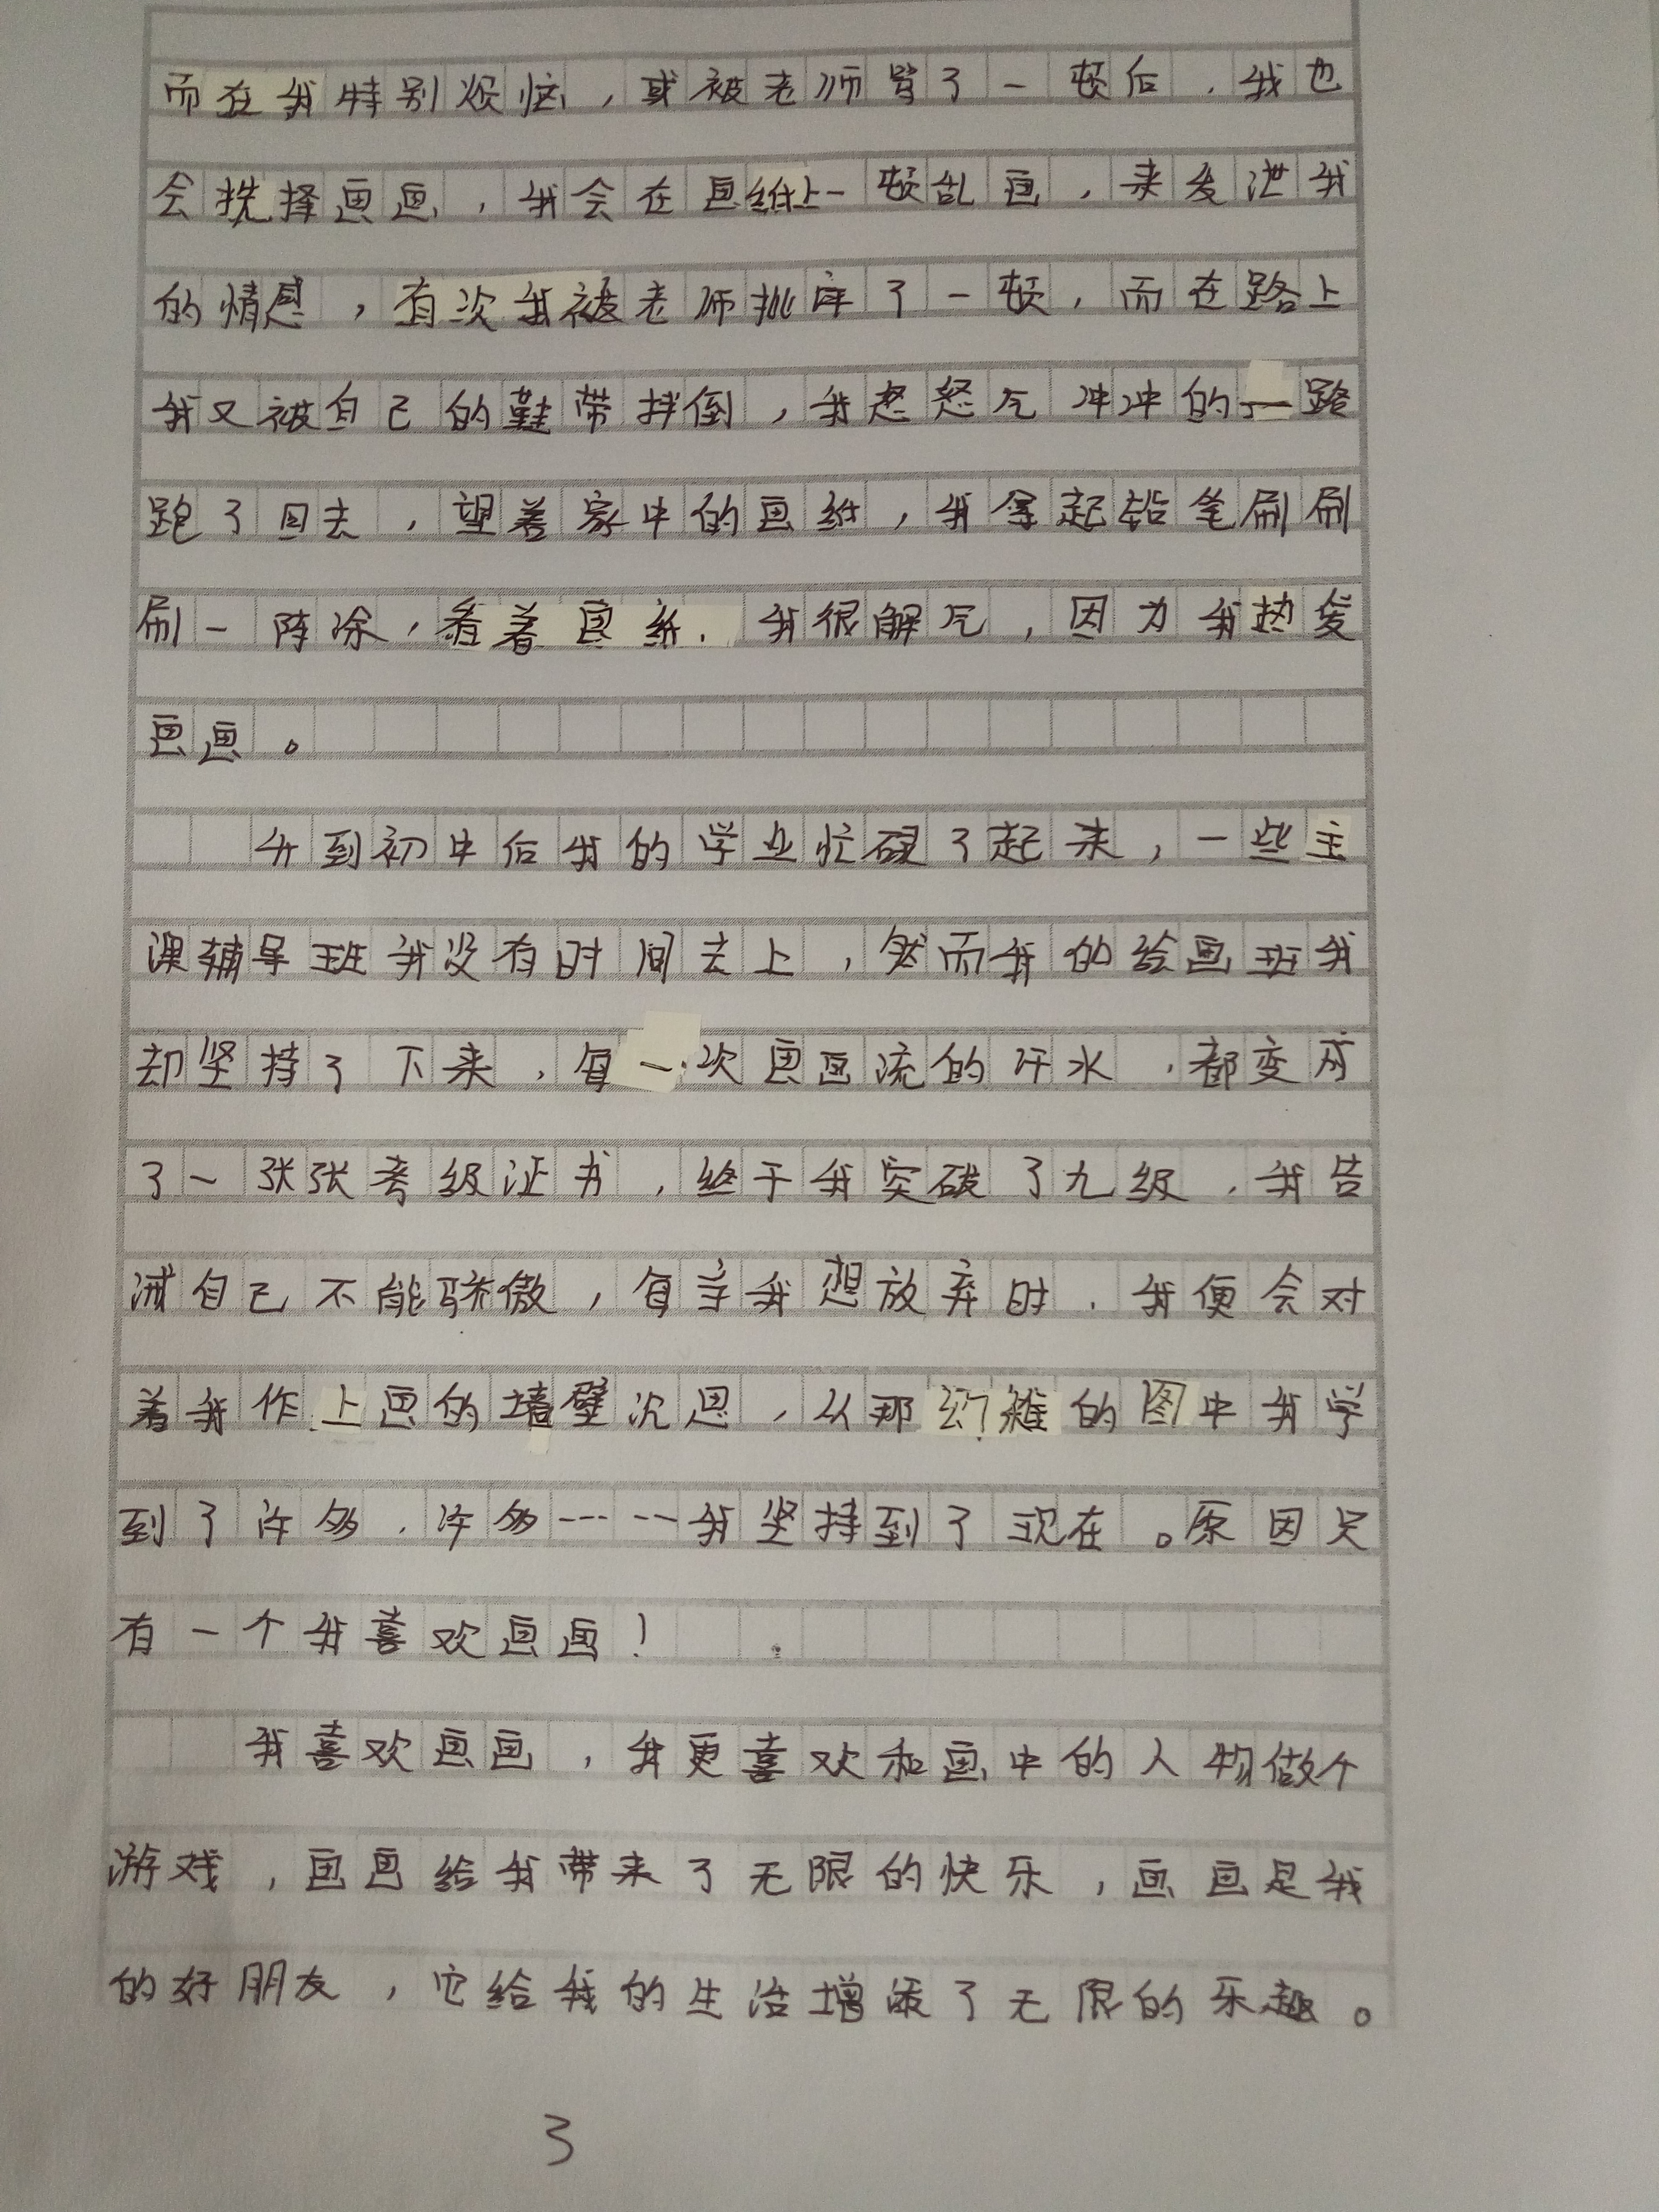 而在我特别烦恼，或被老师骂了一顿后，我也
会挑择画画，我会在画纸上一顿乱画，来发泄我
的情感，有次我被老师批评了一顿，而在路上
我又被自己的鞋带拌倒，我怒怒气冲冲的一路
跑了回去，望着家中的画纸，我拿起铅笔刷刷
刷一阵涂，看着画纸，我很解气，因为我热爱
画画。
升到初中后我的学业忙碌了起来，一些主
课辅导班我没有时间去上，然而我的绘画班我
却坚持了下来，每一次画画流的汗水，都变成
了一张张考级证书，终于我突破了九级，我告
诫自己不能骄傲，每当我想放弃时，我便会对
着我作上画的墙壁沉思，从那幼稚的图中我学
到了许多，许多……我坚持到了现在。原因只
有一个我喜欢画画！
我喜欢画画，我更喜欢和画中的人物做个
游戏，画画给我带来了无限的快乐，画画是我
的好朋友，它给我的生活增添了无限的乐趣。
3